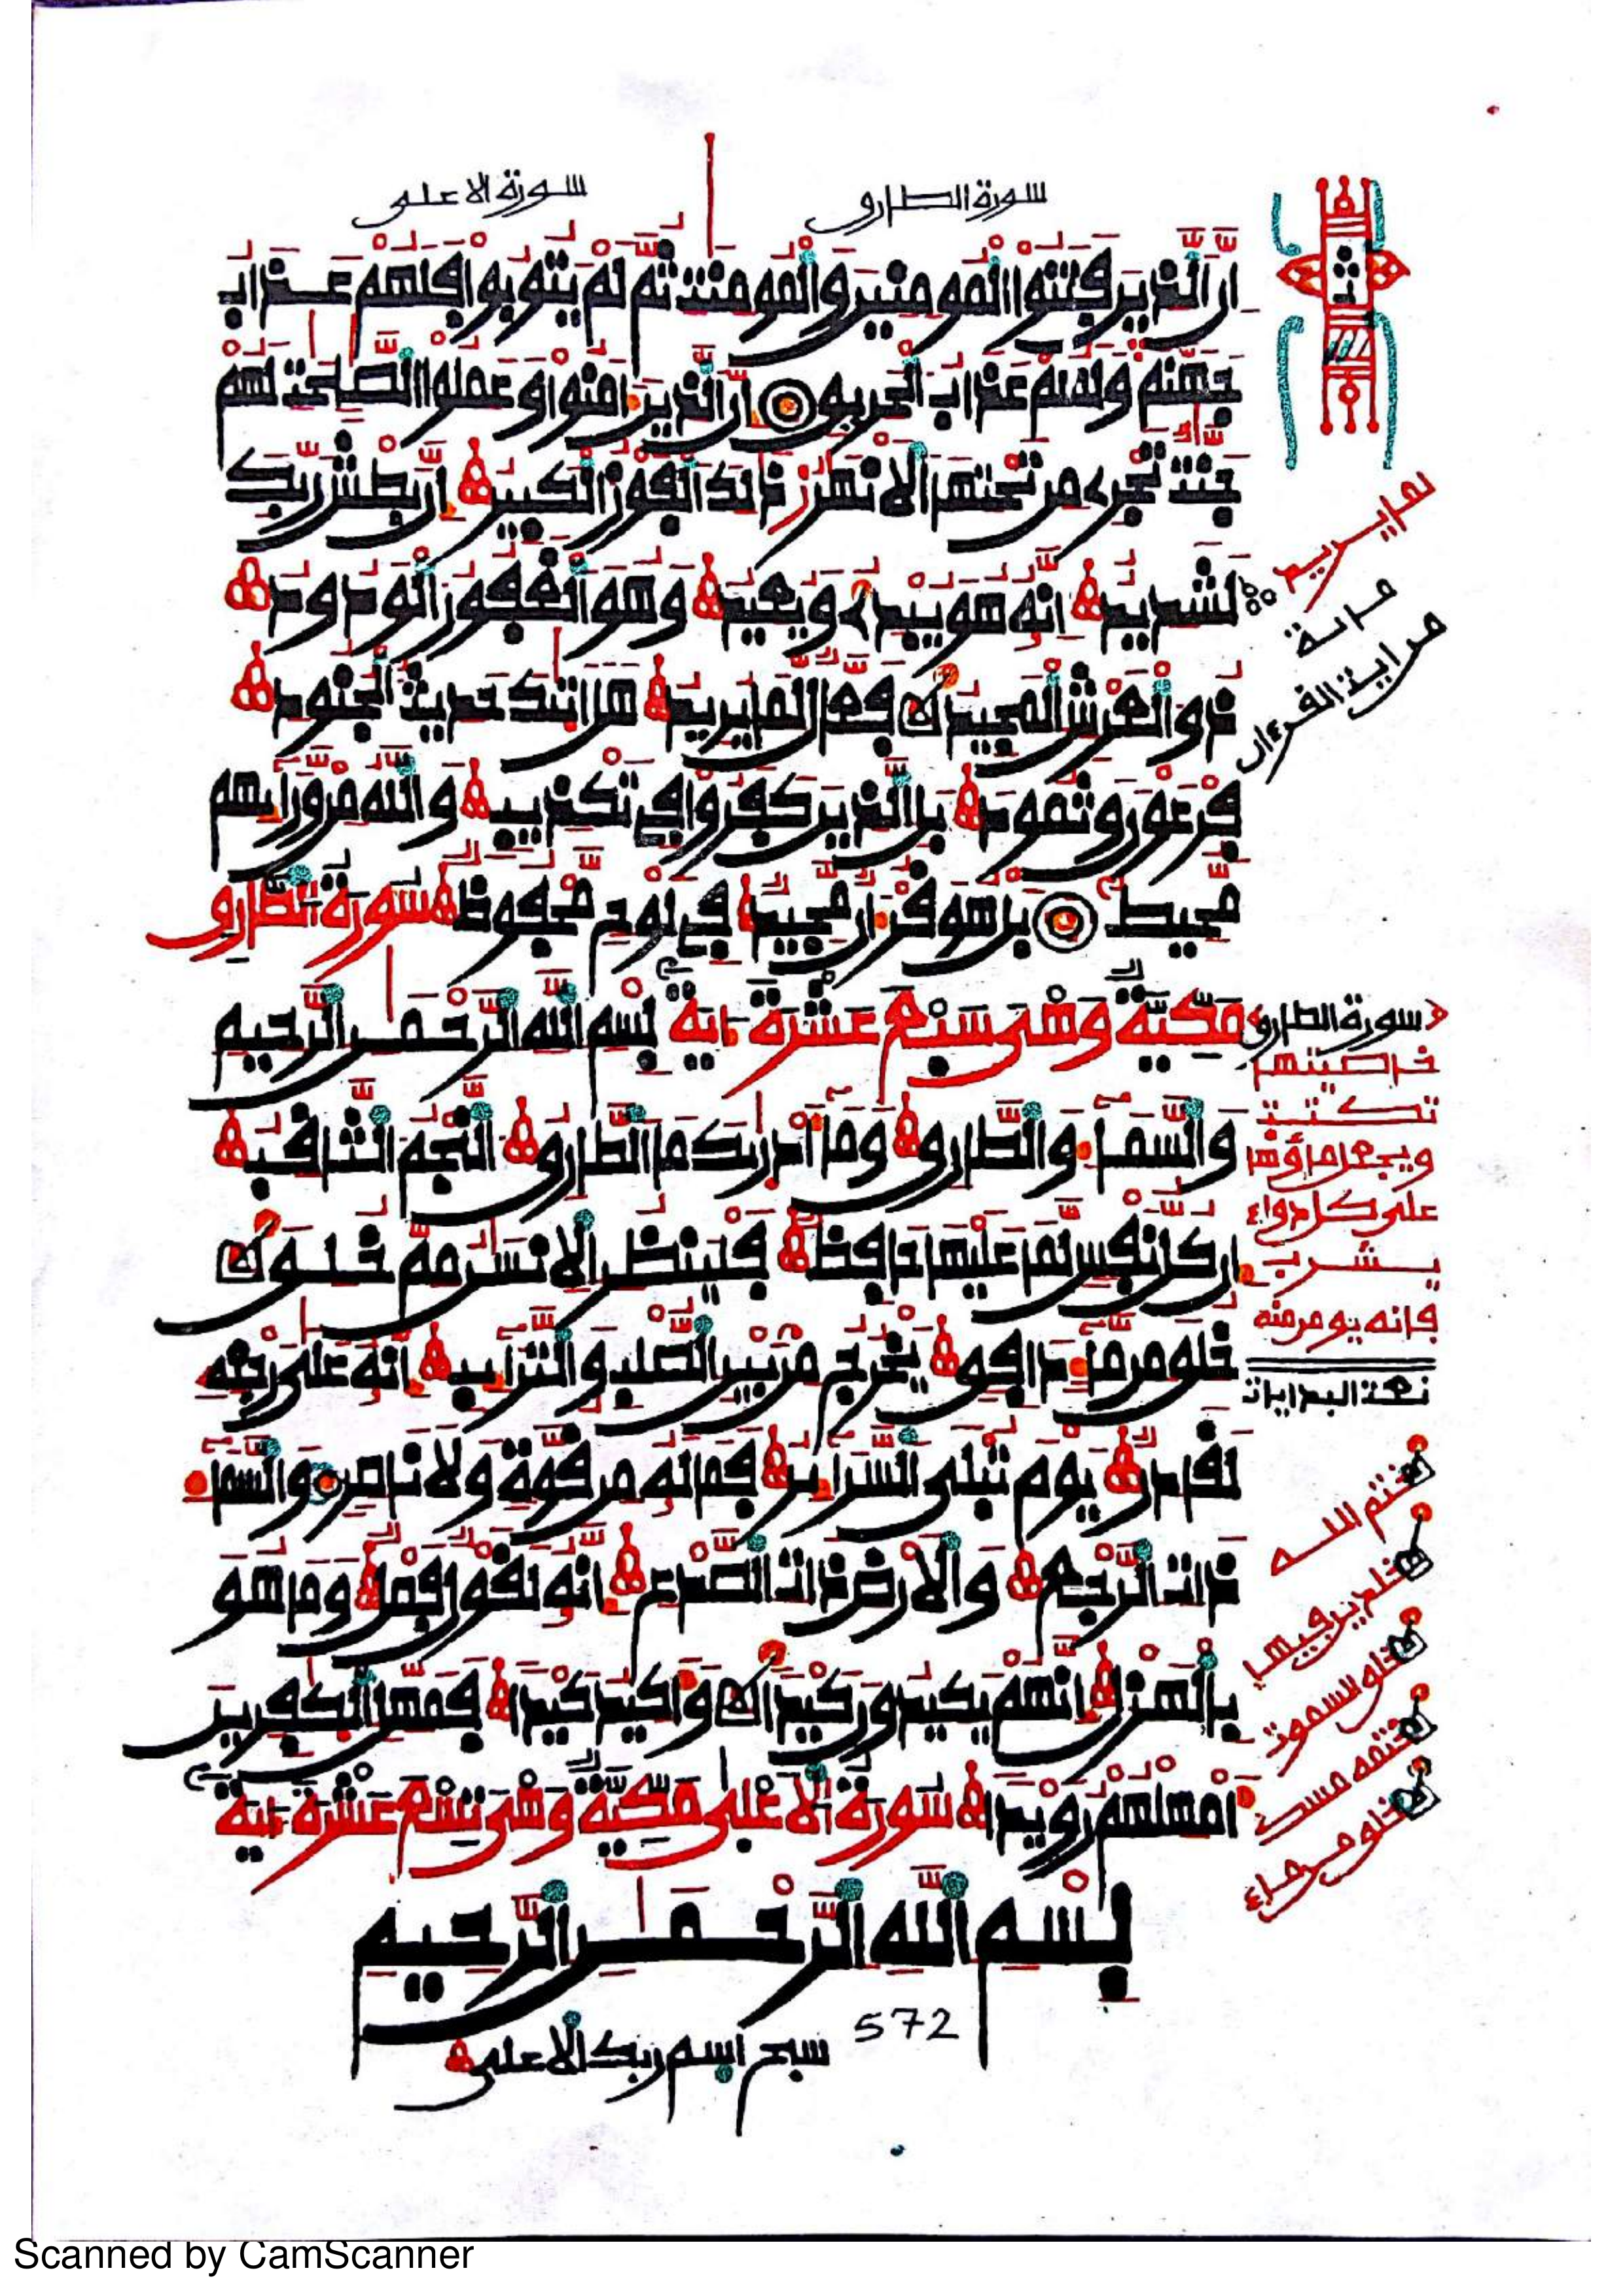 سورة الطارق
سورة الاعلى
ان الذين فتنوا المومنين والمومنت ثم لم يتوبوا فلهم عذاب
جهنم ولهم عذاب الحريق ان الذين ءامنوا وعملوا الصلحت لهم
جنت تجري من تحتها الانهر ذلك الفوز الكبير ان بطش ربك
لشديد انه هو يبدئ ويعيد وهو الغفور الودود
ذو العرش المجيد فعال لما يريد هل اتيك حديث الجنود
فرعون وثمود بل الذين كفروا في تكذيب والله من ورائهم
محيط بل هو قرءان مجيد في لوح محفوظ سورة الطارق
مكية وهي سبع عشرة ءاية بسم الله الرحمن الرحيم
والسماء والطارق وما ادريك ما الطارق النجم الثاقب
ان كل نفس لما عليها حافظ فلينظر الانسن مم خلق
خلق من ماء دافق يخرج من بين الصلب والترايب انه على رجعه
لقادر يوم تبلى السراير فما له من قوة ولا ناصر والسماء
ذات الرجع والارض ذات الصدع انه لقول فصل وما هو
بالهزل انهم يكيدون كيدا واكيد كيدا فمهل الكفرين
امهلهم رويدا سورة الاعلى مكية وهي تسع عشرة ءاية
بسم الله الرحمن الرحيم
572
سبح اسم ربك الاعلى
لما يريد
من اية القرءان
سورة الطارق
خاصيتها
تكتب
ويجعل ماؤها
على كل دواء
يشرب
فانه يومن منه
ختم الله
خلدين فيها
خلق السموت
ختمه مسك
خلق من ماء